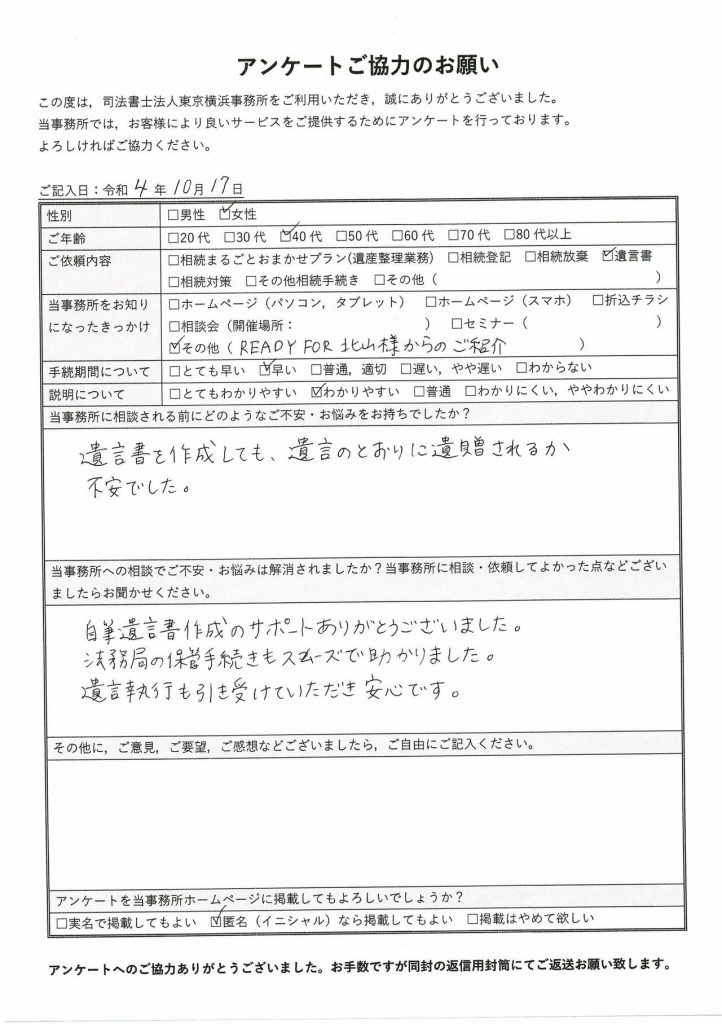 アンケートご協力のお願い
この度は，司法書士法人東京横浜事務所をご利用いただき，誠にありがとうございました。
当事務所では，お客様により良いサービスをご提供するためにアンケートを行っております。
よろしければご協力ください。
ご記入日：令和 4 年 10 月 17 日
性別 □男性 ☑女性
ご年齢 □20代 □30代 ☑40代 □50代 □60代 □70代 □80代以上
ご依頼内容 □相続まるごとおまかせプラン(遺産整理業務) □相続登記 □相続放棄 ☑遺言書
□相続対策 □その他相続手続き □その他（ ）
当事務所をお知り □ホームページ（パソコン，タブレット） □ホームページ（スマホ） □折込チラシ
になったきっかけ □相談会（開催場所： ） □セミナー（ ）
☑その他（ READY FOR 北山様からのご紹介 ）
手続期間について □とても早い ☑早い □普通，適切 □遅い，やや遅い □わからない
説明について □とてもわかりやすい ☑わかりやすい □普通 □わかりにくい，ややわかりにくい
当事務所に相談される前にどのようなご不安・お悩みをお持ちでしたか？
遺言書を作成しても、遺言のとおりに遺贈されるか
不安でした。
当事務所への相談でご不安・お悩みは解消されましたか？当事務所に相談・依頼してよかった点などござい
ましたらお聞かせください。
自筆遺言書作成のサポートありがとうございました。
法務局の保管手続きもスムーズで助かりました。
遺言執行も引き受けていただき安心です。
その他に，ご意見，ご要望，ご感想などございましたら，ご自由にご記入ください。
アンケートを当事務所ホームページに掲載してもよろしいでしょうか？
□実名で掲載してもよい ☑匿名（イニシャル）なら掲載してもよい □掲載はやめて欲しい
アンケートへのご協力ありがとうございました。お手数ですが同封の返信用封筒にてご返送お願い致します。